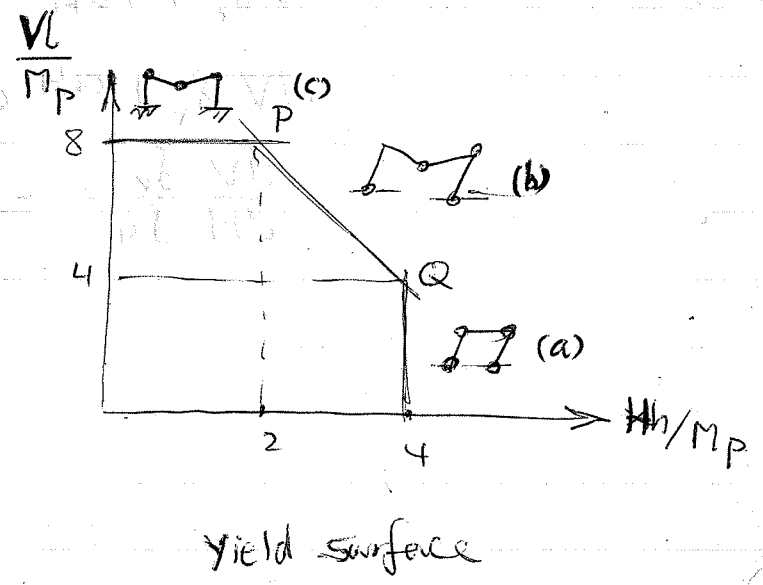 Vl
Mp
(c)
P
8
(b)
4
Q
(a)
Hh/Mp
2
4
Yield surface